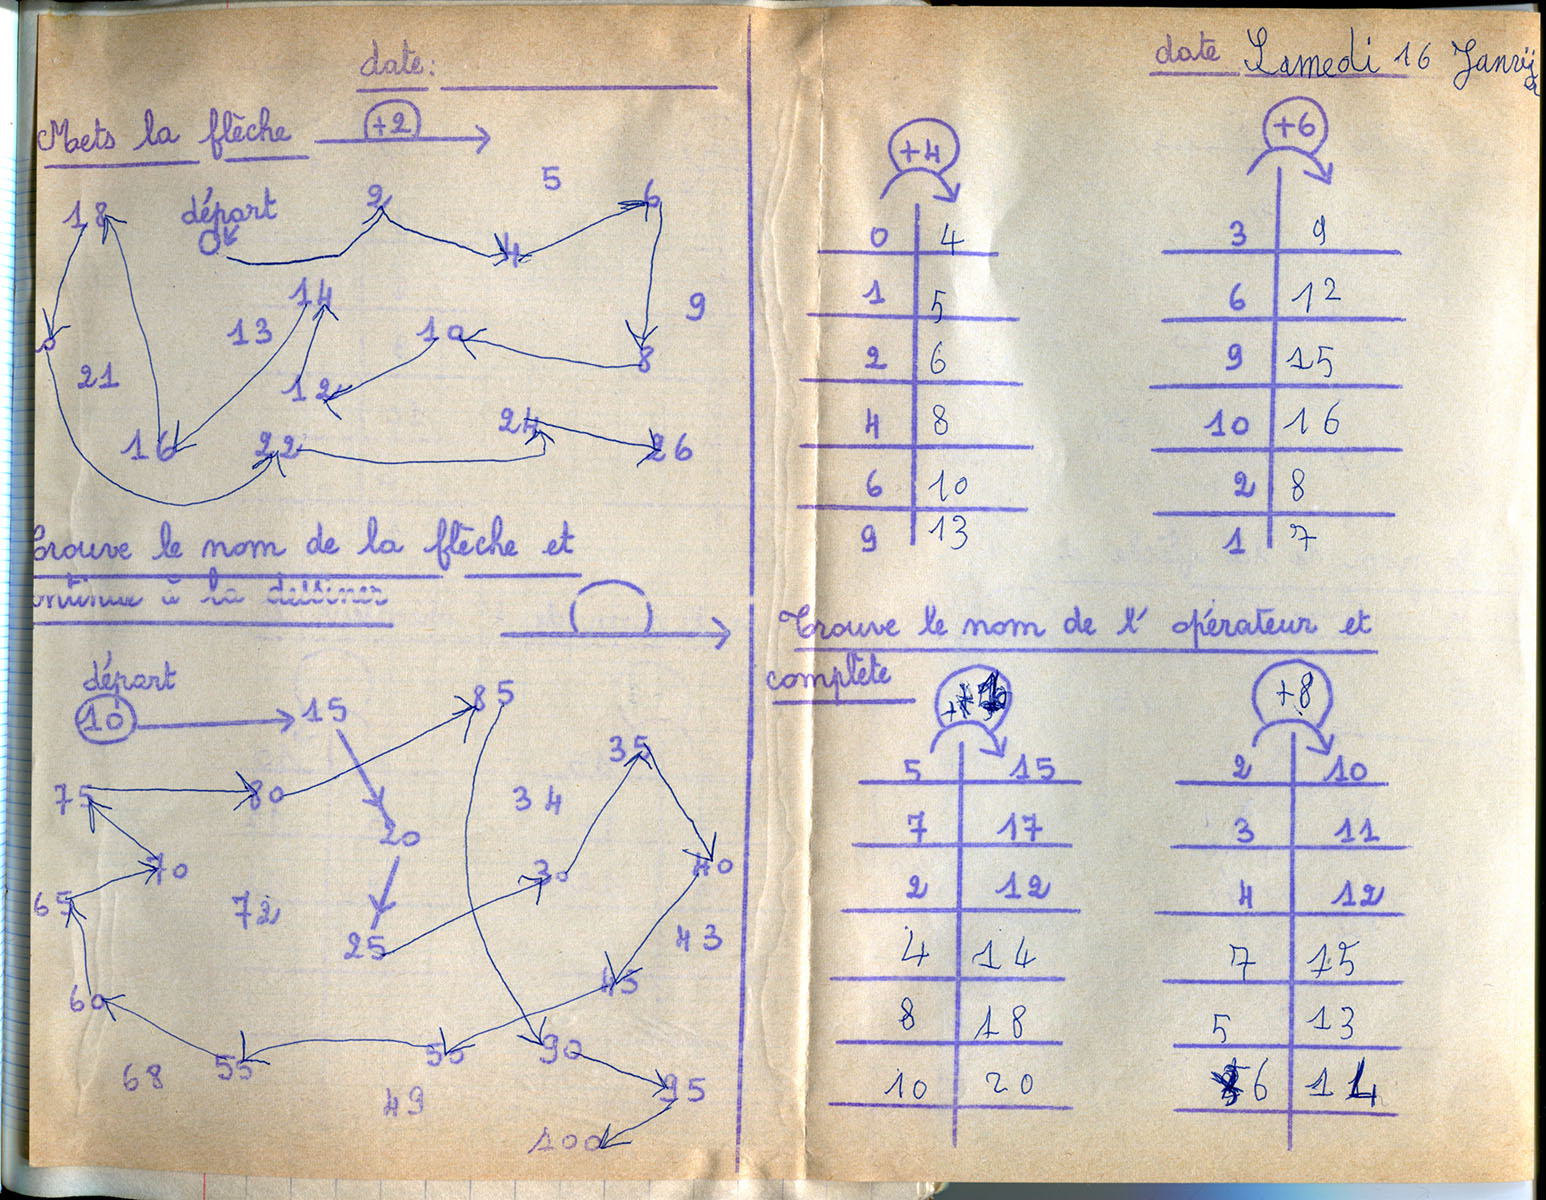 date:
Mets la flèche +2
5
18 départ 2 6
0 4
14 9
13 10
8
21 12
24
16 22 26
Trouve le nom de la flèche et
continue à la dessiner
départ
10 15 85
35
75 80 34
20
70 30 40
65 72
25 43
45
60
50 90
55
68 95
49
100
date Samedi 16 Janvier
+4
0 4
1 5
2 6
4 8
6 10
9 13
+6
3 9
6 12
9 15
10 16
2 8
1 7
Trouve le nom de l' opérateur et
complète
5 15
7 17
2 12
4 14
8 18
10 20
+8
2 10
3 11
4 12
7 15
5 13
6 14